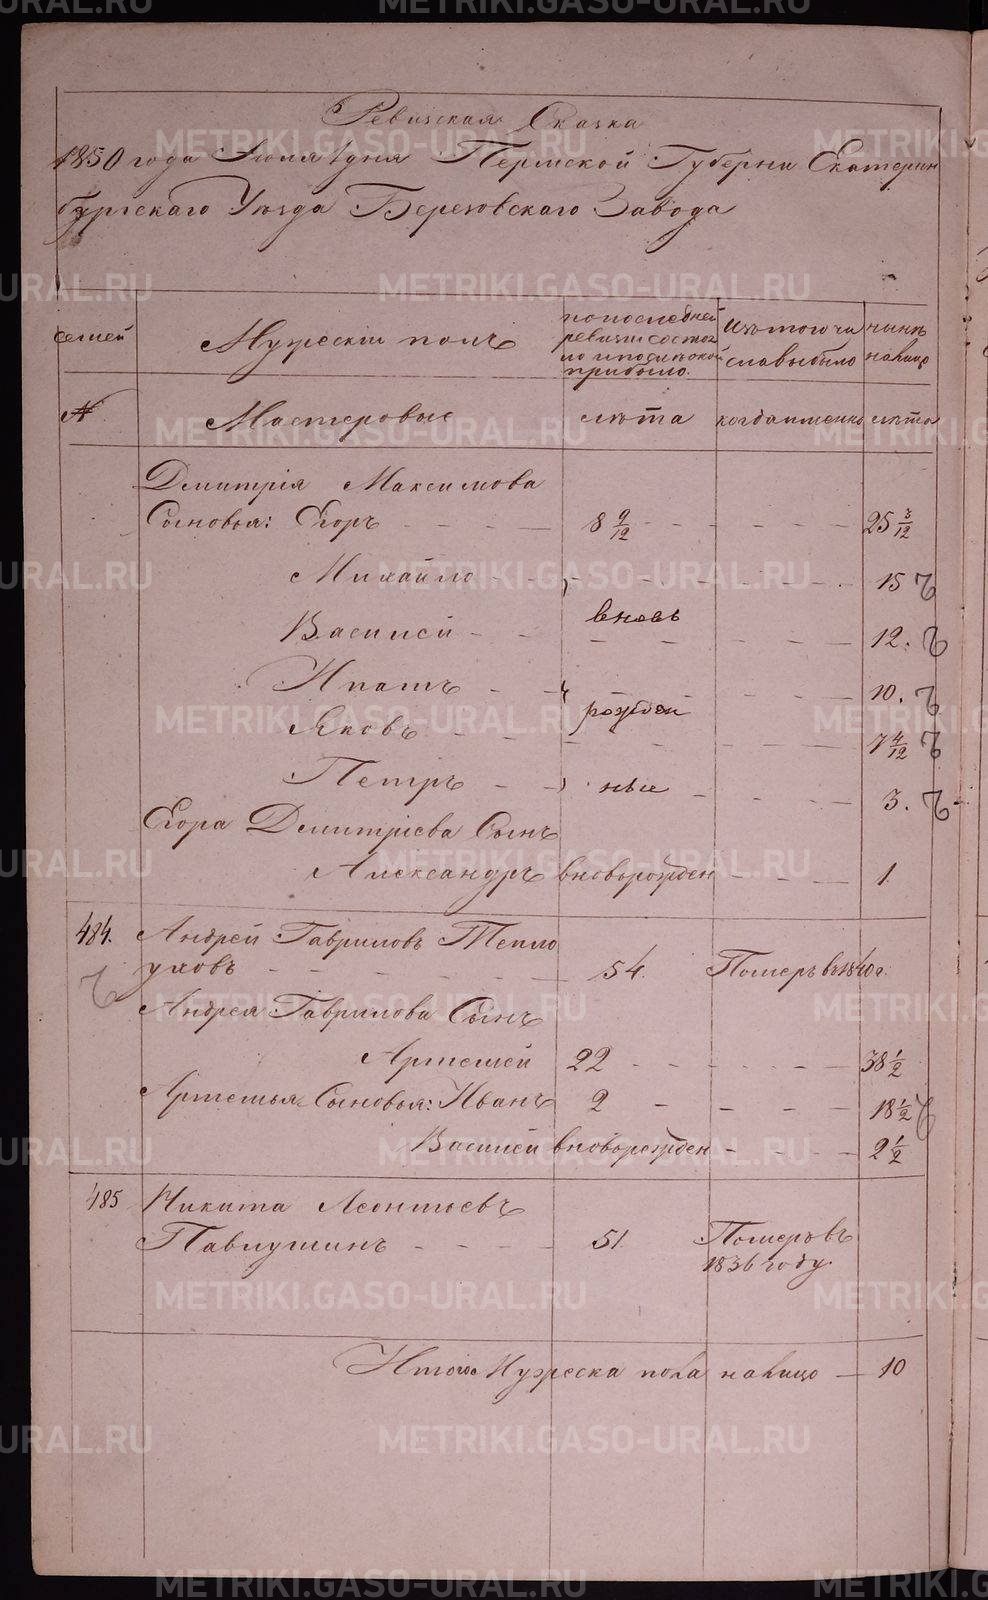 Ревизская Сказка
1850 года Июля 1 дня Пермской Губерни Екатерин
бургскаго Уезда Березовскаго Завода
семей
Мужескiй полъ
по последней
ревизiи состоя
ло и после оной
прибыло.
Изъ того чи
сла выбыло
ныне
налицо
№
Мастеровые
лѣта
когда именно
лѣта
Дмитрiя Максимова
Сыновья: Егоръ 8 9/12 25 3/12
Михайло 15
вновь
Василей 12.
Ипатъ 10.
рожден
Яковъ 7 4/12
Петръ ные 3.
Егора Дмитрiева Сынъ
Александръ вновь рожден 1.
484. Андрей Гавриловъ Тепло
уховъ 54. Померъ въ 1840 г.
Андрея Гаврилова Сынъ
Артемей 22 38 1/2
Артемья Сыновья: Иванъ 2 18 1/2
Василей вновь рожден 2 1/2
485 Никита Леонтьевъ
Павлушинъ 51. Померъ въ
1836 году.
Итого Мужеска пола налицо — 10
METRIKI.GASO-URAL.RU